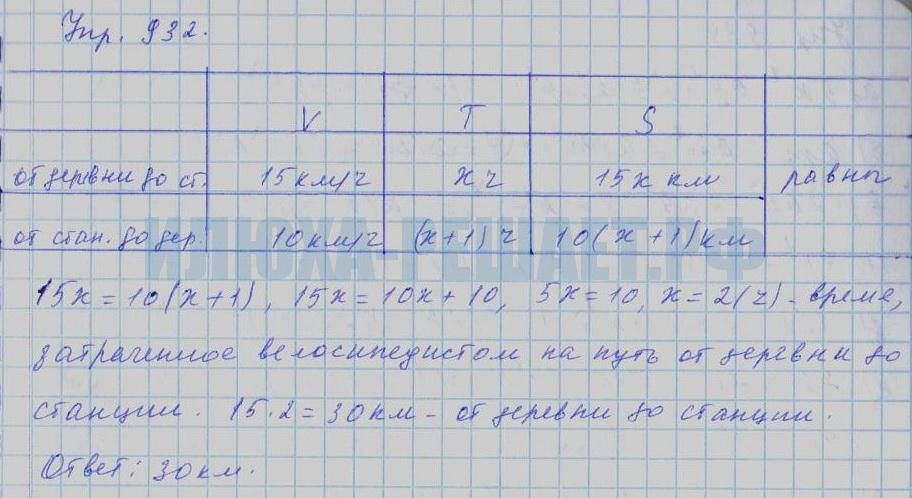 Упр. 932.
V T S
от деревни до ст. 15 км/ч х ч 15х км равны
от стан. до дер. 10 км/ч (х+1) ч 10(х+1) км
ИЛЮХА-РЕШАЕТ.РФ
15х = 10(х+1), 15х = 10х + 10, 5х = 10, х = 2(ч) - время,
затраченное велосипедистом на путь от деревни до
станции. 15·2 = 30 км - от деревни до станции.
Ответ: 30 км.